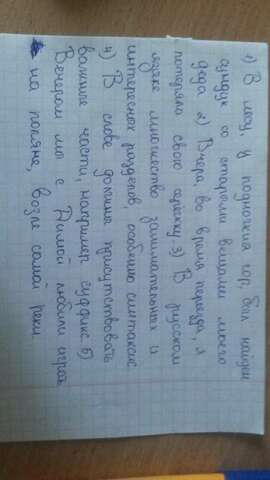 1) В лесу, у подножия гор, был найден
сундук со старыми вещами моего
деда 2) Вчера, во время переезда, я
потеряла свою сережку 3) В русском
языке множество занимательных и
интересных разделов, особенно синтаксис
4) В слове должны присутствовать
важные части, например суффикс. 5)
Вечером мы с Димой любили играть
на поляне, возле самой реки